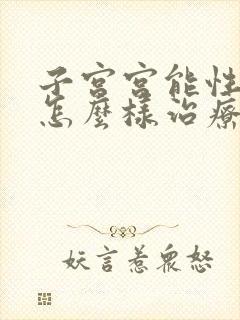 子宮宮能性
怎麼樣治療
妖言惹眾怒